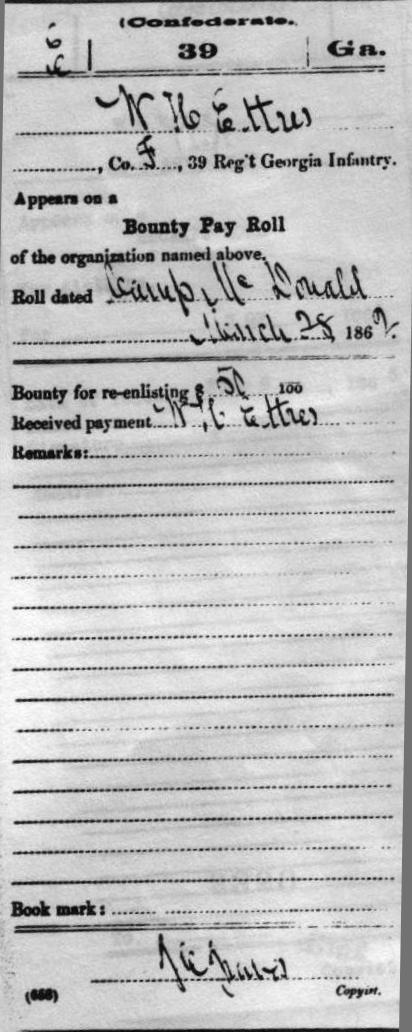 (Confederate.
E | 39 | Ga.
W H Ettres
, Co. F, 39 Reg't Georgia Infantry.
Appears on a
Bounty Pay Roll
of the organization named above.
Roll dated Camp McDonald
March 28, 1862.
Bounty for re-enlisting $ 50 100
Received payment W H Ettres
Remarks:
Book mark:
(656) Copyist.